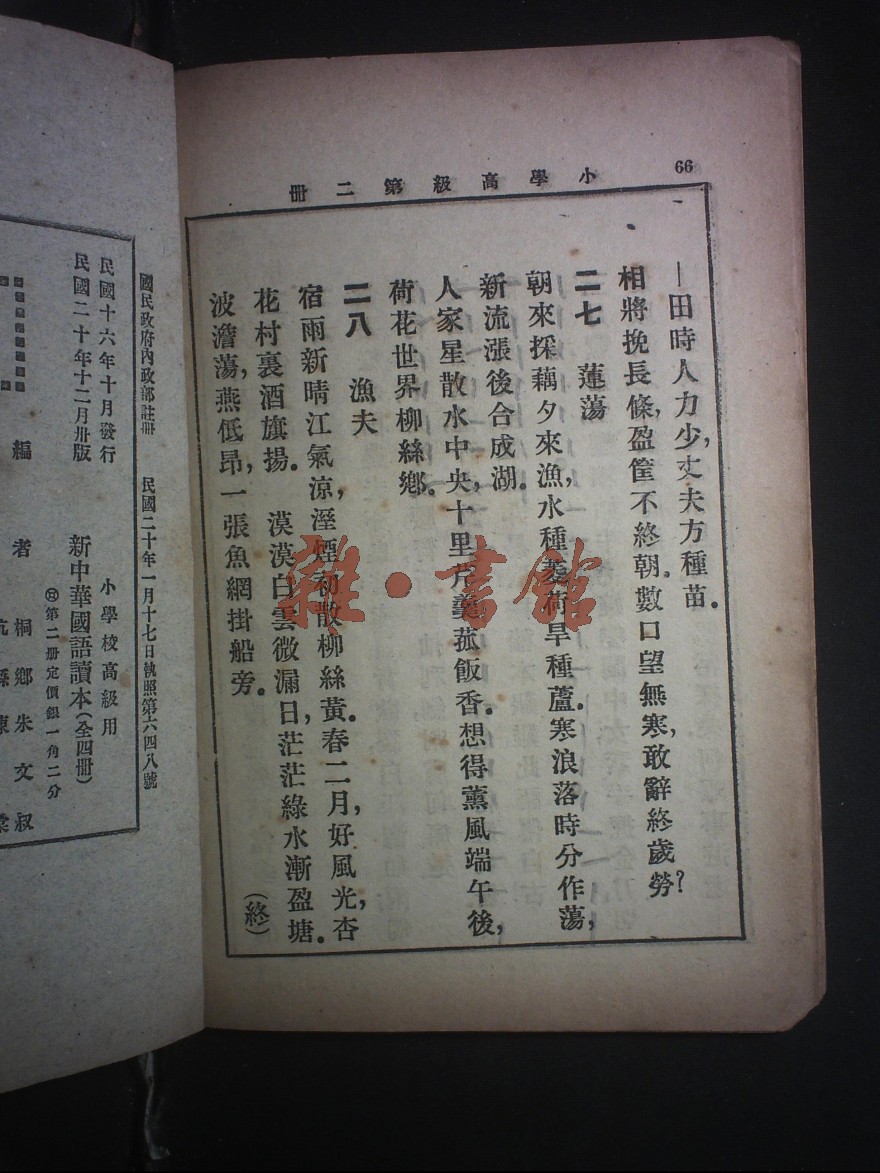 66
小學高級第二册
一田時人力少，丈夫方種苗。
相將挽長條，盈筐不終朝。數口望無寒，敢辭終歲勞？
二七　蓮蕩
朝來採藕夕來漁，水種菱荷旱種蘆。寒浪落時分作蕩，
新流漲後合成湖。
人家星散水中央，十里芹羹菰飯香。想得薰風端午後，
荷花世界柳絲鄉。
二八　漁夫
宿雨新晴江氣涼，溼煙初散柳絲黃。春二月，好風光，杏
花村裏酒旗揚。　漠漠白雲微漏日，茫茫綠水漸盈塘。
波澹蕩，燕低昂，一張魚網掛船旁。
（終）
國民政府內政部註冊　民國二十年一月十七日執照第六四八號
民國十六年十月發行
民國二十年十二月卅版
小學校高級用
新中華國語讀本（全四冊）
第二册定價銀一角二分
編　者　桐鄉朱文叔
杭縣陳棠
雜·書館